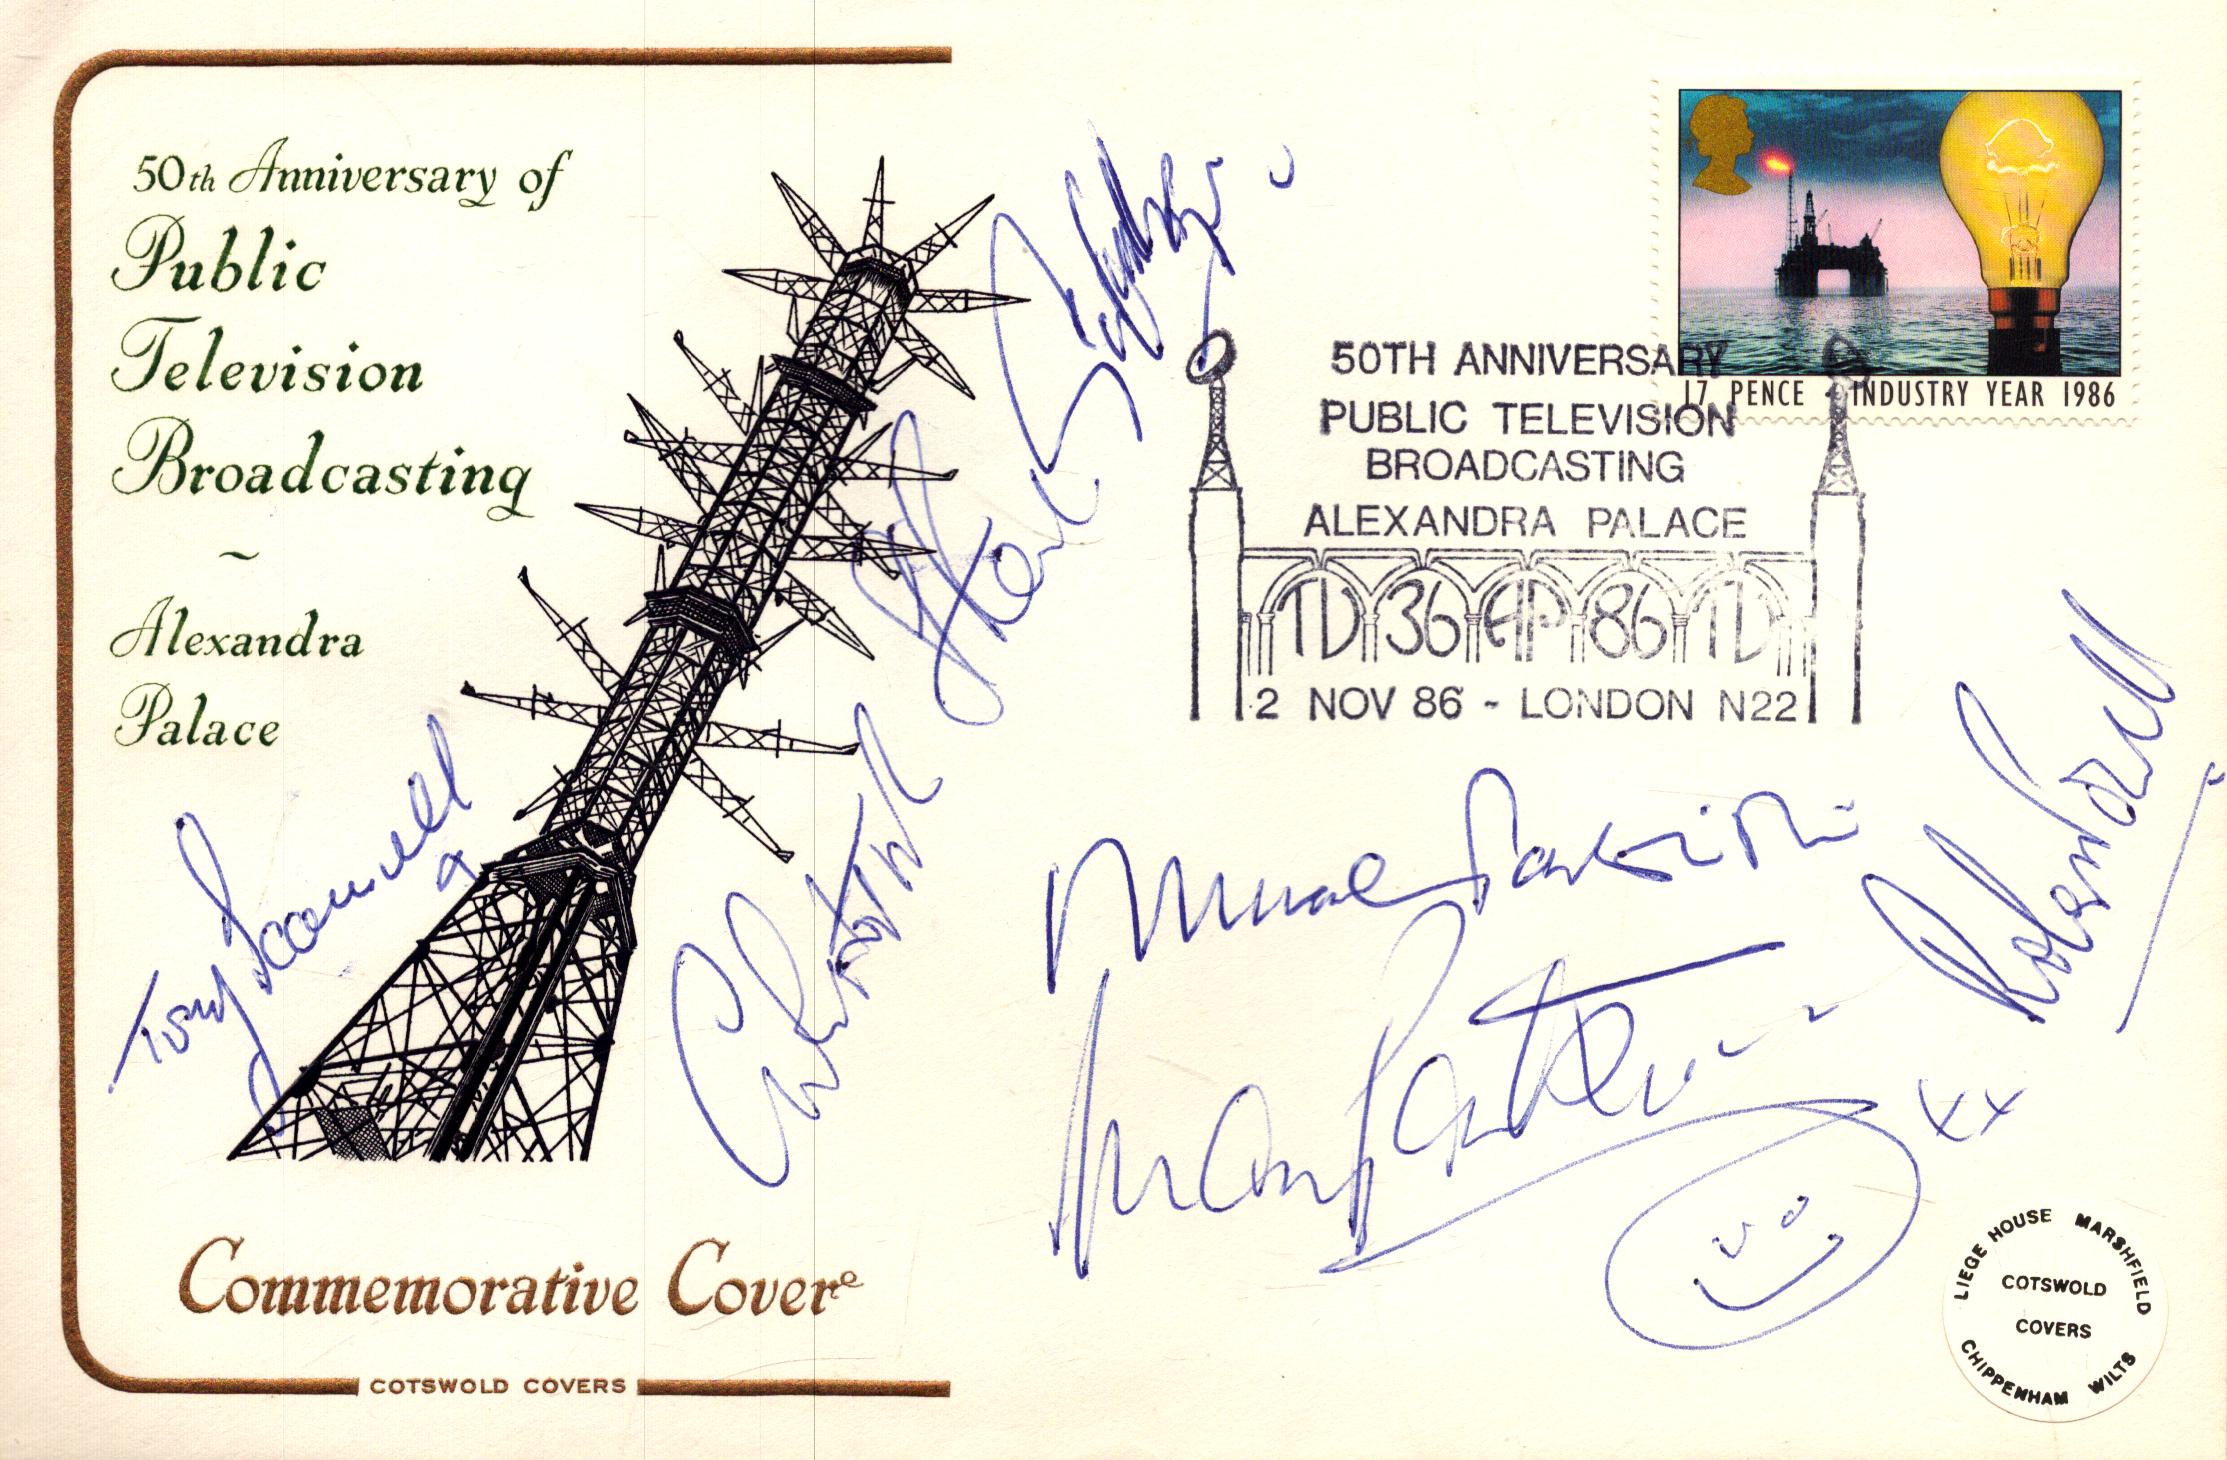 50th Anniversary of
Public
Television
Broadcasting
~
Alexandra
Palace
Commemorative Cover
COTSWOLD COVERS
17 PENCE · INDUSTRY YEAR 1986
50TH ANNIVERSARY
PUBLIC TELEVISION
BROADCASTING
ALEXANDRA PALACE
TV 36 AP 86 TV
2 NOV 86 - LONDON N22
Tony
Robert Powell
xx
LIEGE HOUSE MARSHFIELD
COTSWOLD
COVERS
CHIPPENHAM WILTS